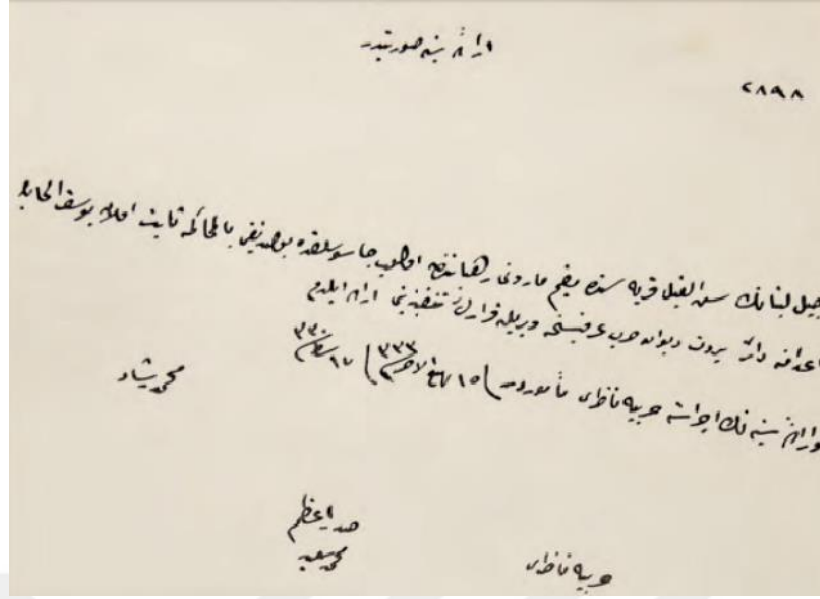 ارادهٔ سنیه صورتیدر
٢٨٩٨
جبل لبنانك سن الفيل قريه سنده مقيم مارونى رهباننده اولوب جاسوسلقده بولنديغى بالمحاكمه ثابت اولان يوسف الحايك
اعدامنه دائر بيروت ديوان حرب عرفيسنجه ويريلن قرارك تنفيذينى اراده ايلدم
ارادهٔ سنيه نك اجراسنه حربيه ناظرى مأموردر ١٥ ربيع الاخر ٣٣٣ ١٧ شباط ٣٣٠
محمد رشاد
صدر اعظم
محمد سعيد
حربيه ناظرى